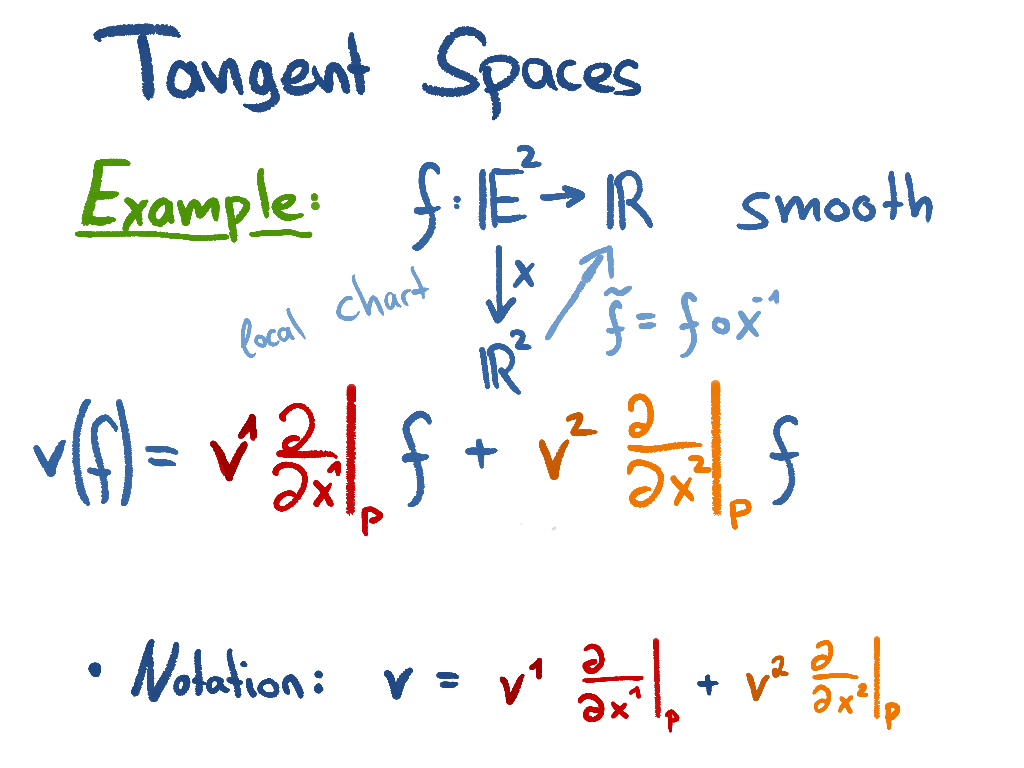 Tangent Spaces
Example: f: 𝔼² → ℝ smooth
local chart x f̃ = f∘x⁻¹
ℝ²
v(f) = v¹ ∂/∂x¹|ₚ f + v² ∂/∂x²|ₚ f
• Notation: v = v¹ ∂/∂x¹|ₚ + v² ∂/∂x²|ₚ